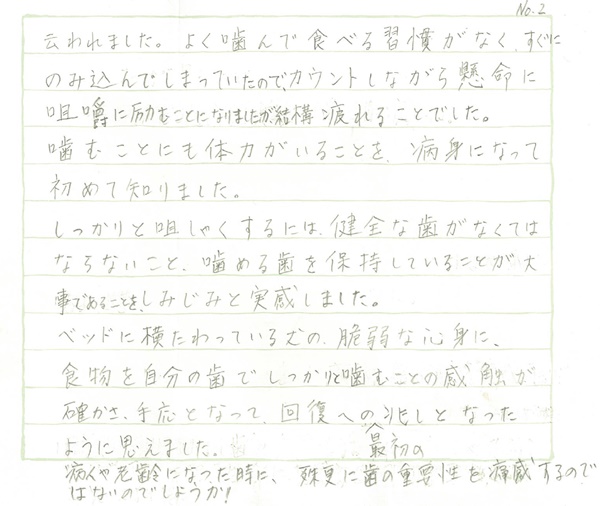 No.2
云われました。よく噛んで食べる習慣がなく、すぐに
のみ込んでしまっていたので、カウントしながら懸命に
咀嚼に励むことになりましたが、結構疲れることでした。
噛むことにも体力がいることを、病身になって
初めて知りました。
しっかりと咀しゃくするには、健全な歯がなくては
ならないこと、噛める歯を保持していることが大
事であることを、しみじみと実感しました。
ベッドに横たわっている丈の、脆弱な心身に、
食物を自分の歯でしっかりと噛むことの感触が
確かさ、手応となって、回復への兆しとなった
最初の
ように思えました。
病人や老齢になった時に、殊更に歯の重要性を痛感するので
はないのでしょうか!